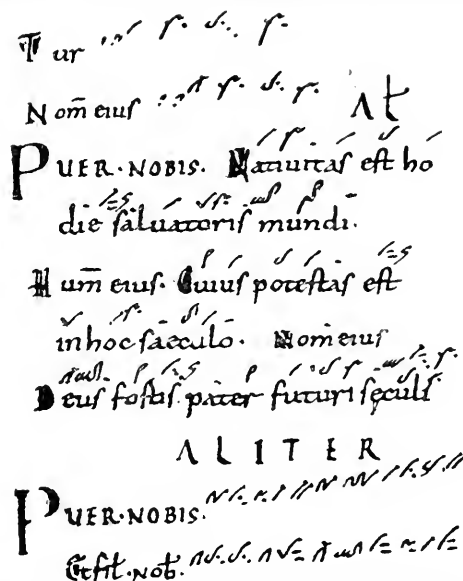 Tur
Nom̄ eius At
PUER·NOBIS. Natiuitas est ho
die saluatoris mundi.
Hum̄ eius. Cuius potestas est
inhoc saeculo. Nom̄ eius
Deus fortis pater futuri sęculi
ALITER
PUER·NOBIS.
Et fil̄. nob̄.